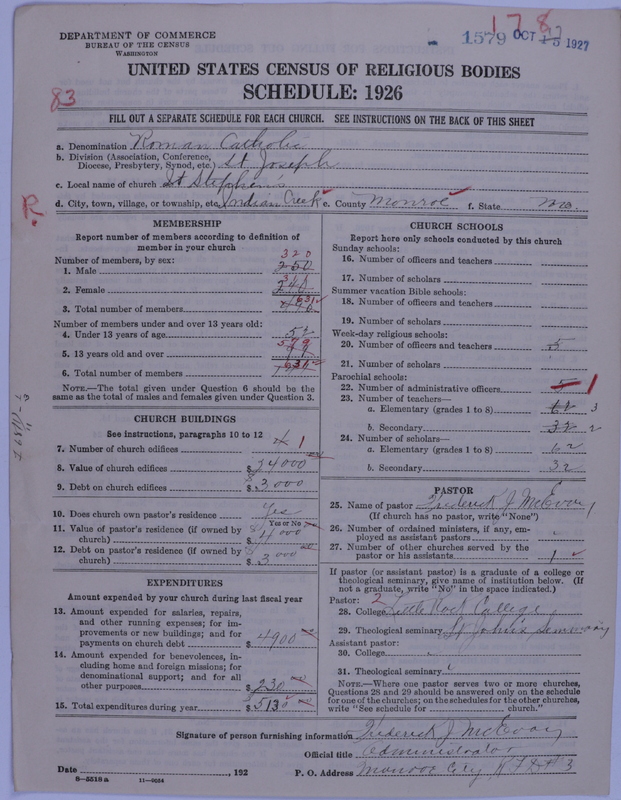 178
1579 OCT 15 1927
DEPARTMENT OF COMMERCE
BUREAU OF THE CENSUS
WASHINGTON
UNITED STATES CENSUS OF RELIGIOUS BODIES
SCHEDULE: 1926
83
FILL OUT A SEPARATE SCHEDULE FOR EACH CHURCH. SEE INSTRUCTIONS ON THE BACK OF THIS SHEET
a. Denomination Roman Catholic
b. Division (Association, Conference, Diocese, Presbytery, Synod, etc.) St Joseph
c. Local name of church St Stephen's
d. City, town, village, or township, etc. Indian Creek e. County Monroe f. State Mo.
R.
MEMBERSHIP
Report number of members according to definition of
member in your church
Number of members, by sex:
320
1. Male 250
2. Female
3. Total number of members
Number of members under and over 13 years old:
4. Under 13 years of age 52
579
5. 13 years old and over
6. Total number of members
NOTE.—The total given under Question 6 should be the
same as the total of males and females given under Question 3.
CHURCH BUILDINGS
See instructions, paragraphs 10 to 12
7. Number of church edifices 1
8. Value of church edifices $34000
9. Debt on church edifices $3000
10. Does church own pastor's residence? Yes
Yes or No
11. Value of pastor's residence (if owned by
church) $4000
12. Debt on pastor's residence (if owned by
church) $3000
EXPENDITURES
Amount expended by your church during last fiscal year
13. Amount expended for salaries, repairs,
and other running expenses; for im-
provements or new buildings; and for
payments on church debt $4900
14. Amount expended for benevolences, in-
cluding home and foreign missions; for
denominational support; and for all
other purposes $230
15. Total expenditures during year $5130
CHURCH SCHOOLS
Report here only schools conducted by this church
Sunday schools:
16. Number of officers and teachers
17. Number of scholars
Summer vacation Bible schools:
18. Number of officers and teachers
19. Number of scholars
Week-day religious schools:
20. Number of officers and teachers 5
21. Number of scholars
Parochial schools:
22. Number of administrative officers 1
23. Number of teachers—
a. Elementary (grades 1 to 8) 62 3
b. Secondary 32 2
24. Number of scholars—
a. Elementary (grades 1 to 8) 62
b. Secondary 32
PASTOR
25. Name of pastor Frederick J McEvoy
(If church has no pastor, write "None")
26. Number of ordained ministers, if any, em-
ployed as assistant pastors
27. Number of other churches served by the
pastor or his assistants 1
If pastor (or assistant pastor) is a graduate of a college or
theological seminary, give name of institution below. (If
not a graduate, write "No" in the space indicated.)
Pastor: 2
28. College Little Rock College
29. Theological seminary St John's Seminary
Assistant pastor:
30. College
31. Theological seminary
NOTE.—Where one pastor serves two or more churches,
Questions 28 and 29 should be answered only on the schedule
for one of the churches; on the schedules for the other churches,
write "See schedule for church."
Signature of person furnishing information Frederick J McEvoy
Official title Administrator
Date , 192 P. O. Address Monroe City R F D # 3
8—5518 a 11—9034